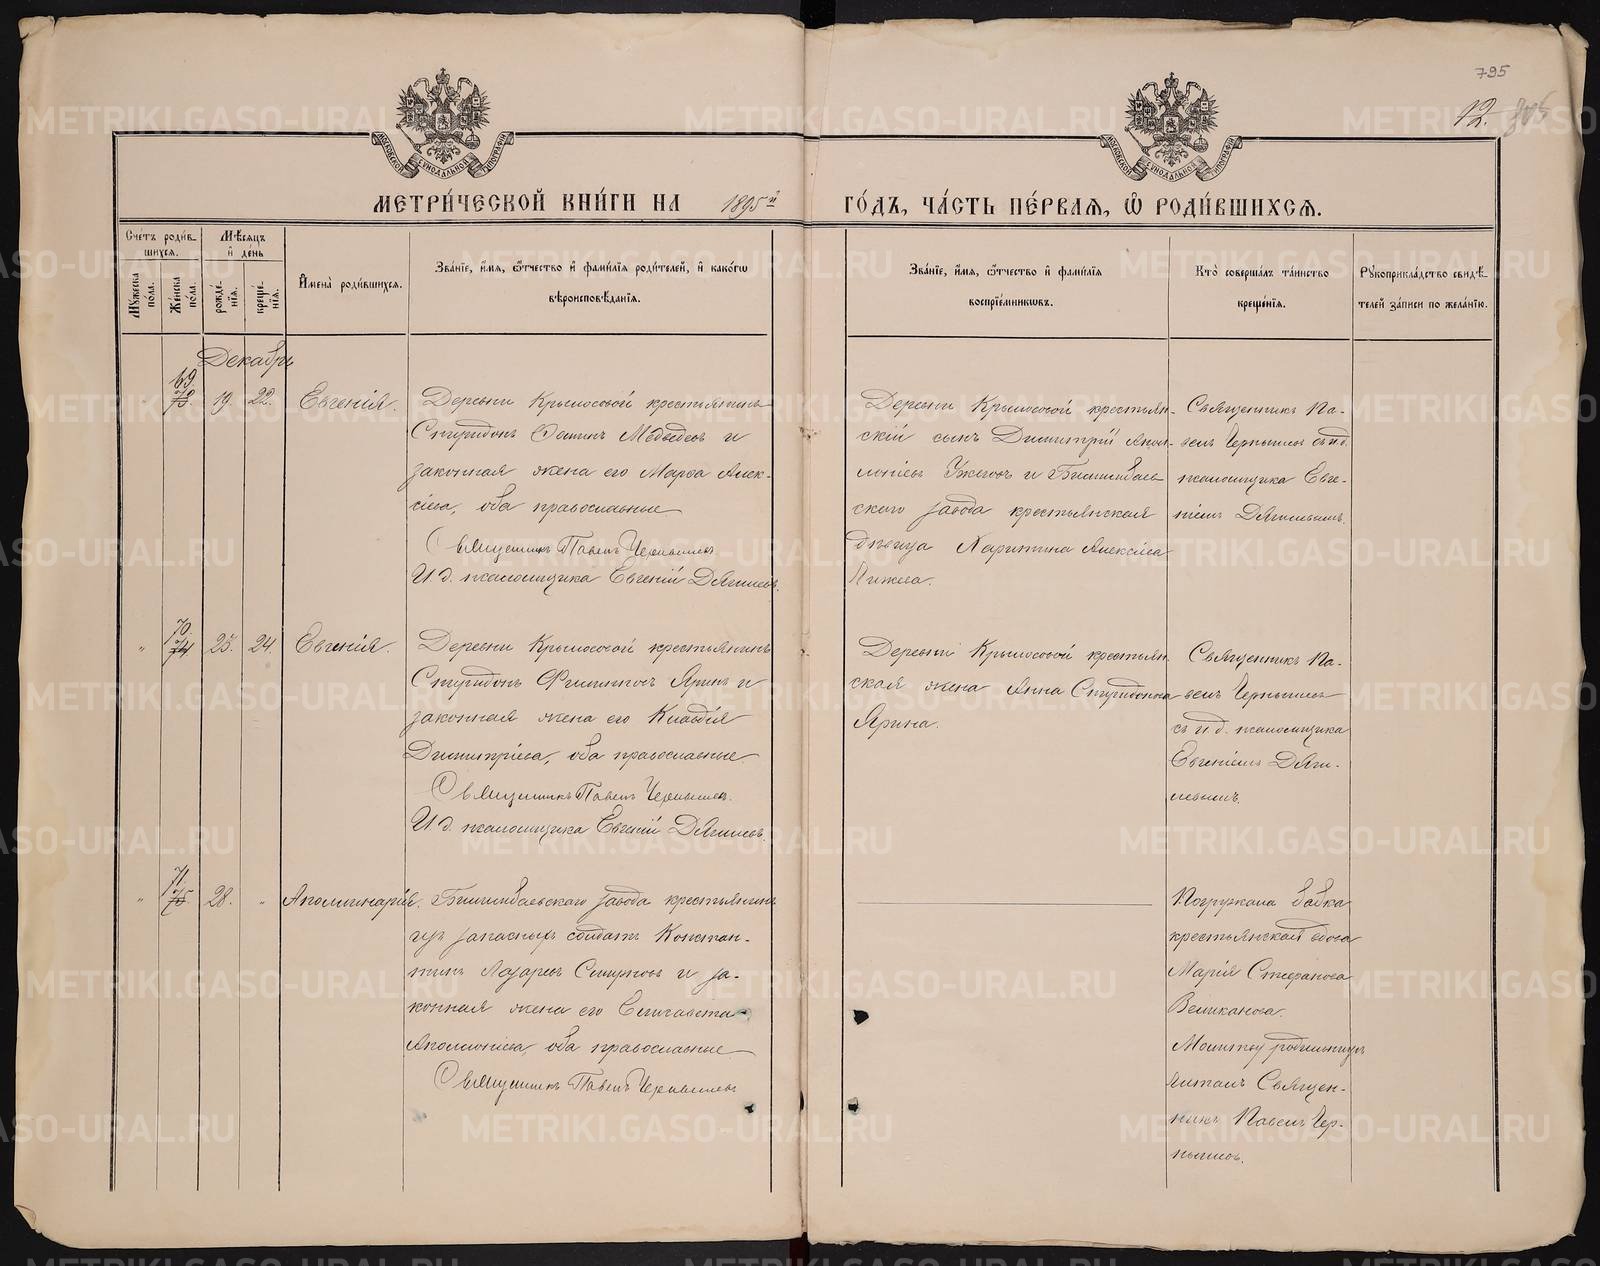 795
12. 805
МОСКОВСКОЙ СѴНОДАЛЬНОЙ ТИПОГРАФІИ
МОСКОВСКОЙ СѴНОДАЛЬНОЙ ТИПОГРАФІИ
МЕТРИ́ЧЕСКОЙ КНИ́ГИ НА 1895й ГО́ДЪ, ЧА́СТЬ ПЕ́РВАЯ, Ѡ РОДИ́ВШИХСЯ.
Сче́тъ роди́в-
шихся.
Му́жеска
по́ла.
Же́нска
по́ла.
Мѣ́сяцъ
и́ де́нь
рожде́-
нїѧ.
креще́-
нїѧ.
И́мена̀ роди́вшихсѧ.
Зва́нїе, и́мѧ, ѻ́тчество и́ фами́лїѧ роди́телей, и́ како́гѡ
вѣроисповѣ́данїѧ.
Зва́нїе, и́мѧ, ѻ́тчество и́ фами́лїѧ
воспрїе́мниковъ.
Кто̀ соверша́лъ та́инство
креще́нїѧ.
Рꙋкоприкла́дство свидѣ́-
телей за́писи по жела́нїю.
Декабрь
69.
73. 19. 22. Евгенія.
Деревни Крылосовой крестьянинъ
Спиридонъ Осипъ Медвѣдевъ и
законная жена его Марѳа Алек-
сіева, оба православные
Священникъ Павелъ Чернышевъ
И. д. псаломщика Евгеній Дягилевъ.
Деревни Крылосовой крестьян-
скій сынъ Димитрій Апол-
лоніевъ Ужеговъ и Билимбаев-
скаго завода крестьянская
дѣвица Харитина Алексіева
Лижева.
Священникъ Па-
велъ Чернышевъ съ и.д.
псаломщика Евге-
ніемъ Дягилевымъ.
70.
" 74 23. 24. Евгенія.
Деревни Крылосовой крестьянинъ
Спиридонъ Филипповъ Яринъ и
законная жена его Клавдія
Димитріева, оба православные.
Священникъ Павелъ Чернышевъ.
И. д. псаломщика Евгеній Дягилевъ.
Деревни Крылосовой крестьян-
ская жена Анна Спиридонова
Ярина.
Священникъ Па-
велъ Чернышевъ
съ и. д. псаломщика
Евгеніемъ Дяги-
левымъ.
71.
" 75. 28. " Аполлинарія.
Билимбаевскаго завода крестьянинъ
изъ запасныхъ солдатъ Констан-
тинъ Лазаревъ Смирновъ и за-
конная жена его Елизавета
Аполлоніева, оба православные
Священникъ Павелъ Чернышевъ
Погружала бабка
крестьянская вдова
Марія Стефанова
Великанова.
Молитву родильницѣ
читалъ Священ-
никъ Павелъ Чер-
нышевъ.
METRIKI.GASO-URAL.RU